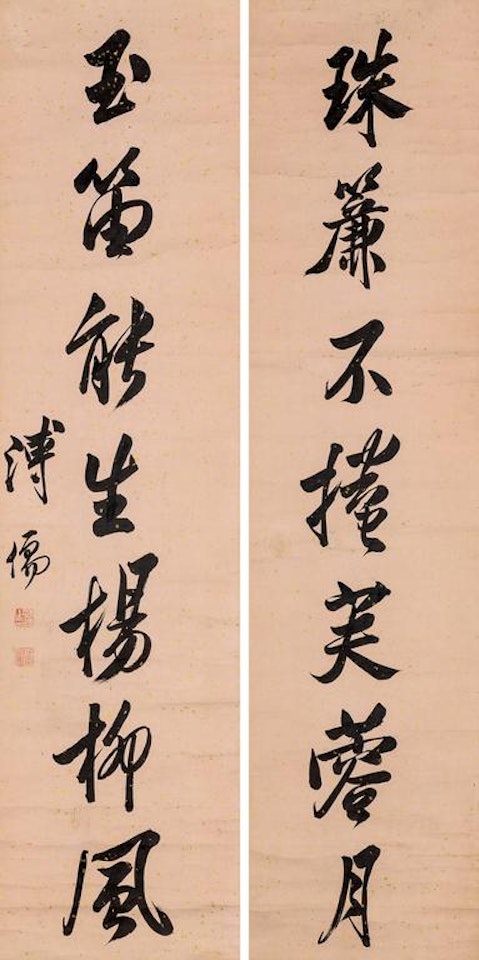 珠簾不掩芙蓉月
玉笛能生楊柳風
溥儒